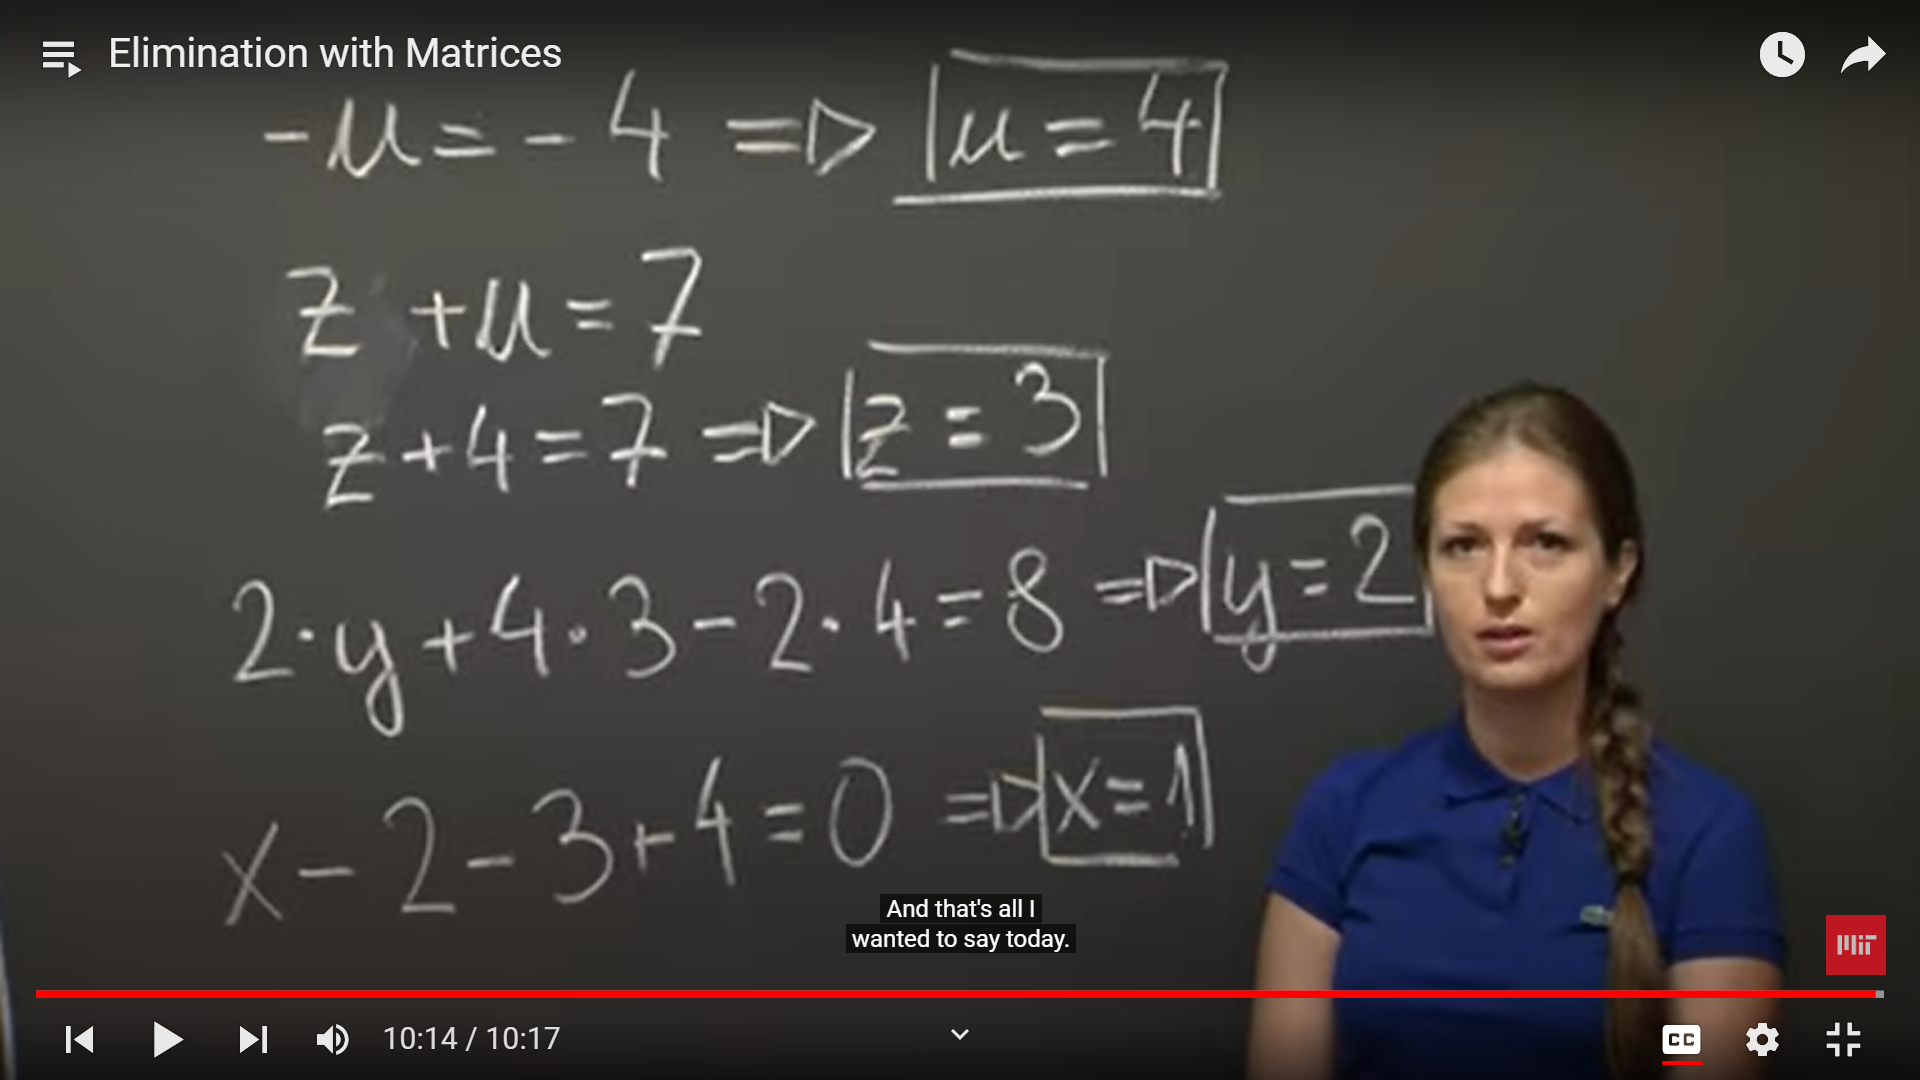 Elimination with Matrices
-u = -4 => u = 4
z + u = 7
z + 4 = 7 => z = 3
2·y + 4·3 - 2·4 = 8 => y = 2
x - 2 - 3 + 4 = 0 => x = 1
And that's all I
wanted to say today.
MIT
10:14 / 10:17
CC